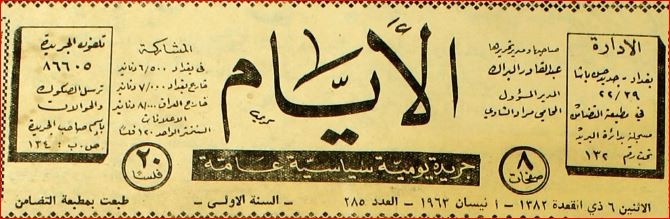 الادارة
بغداد - جديد حسن باشا
٢٢/٣٩
في مطبعة التضامن
مسجلة بدائرة البريد
تحت رقم ١٣٢
صاحبها ومدير تحريرها
عبد القادر البراك
المدير المسؤول
المحامي مراد الشاوي
٨
صفحات
الأيام
جريدة يومية سياسية عامة
المشاركة
في بغداد ٦/٥٠٠ دنانير
خارج بغداد ٧/٠٠٠ دنانير
خارج العراق ٨/٠٠٠ دنانير
الاعلانات
السنتمتر الواحد ١٢٠ فلسا
٢٠
فلسا
تلفون الجريدة
٨٦٦٠٥
ترسل الصكوك
والحوالات
باسم صاحب الجريدة
ص . ب : ١٣٤
الاثنين ٦ ذي القعدة ١٣٨٢ - ١ نيسان ١٩٦٣ - العدد ٢٨٥ - السنة الاولى - طبعت بمطبعة التضامن